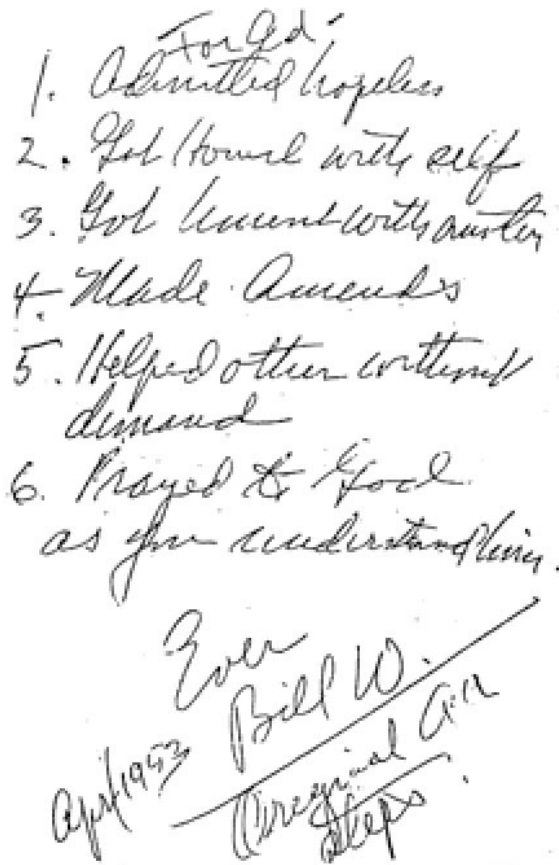 For Ed-
1. Admitted hopeless
2. Got honest with self
3. Got honest with another
4. Made Amends
5. Helped other without
demand
6. Prayed to God
as you understand Him.
Ever
Bill W.
Apr/1953
Original AA
Steps.